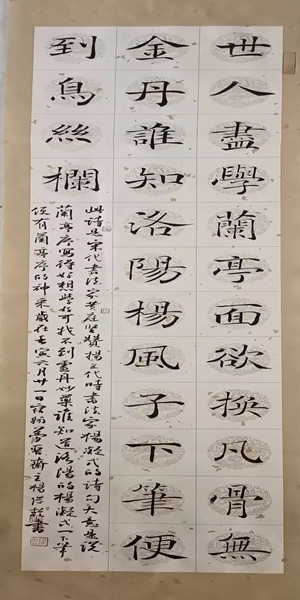 世人盡學蘭亭面欲換凡骨無
金丹誰知洛陽楊風子下筆便
到烏絲欄
此詩是宋代書法家黃庭堅贊楊五代時書法家楊凝式的詩句大意是說
蘭亭序寫得好想學好可找不到靈丹妙藥誰知道洛陽的楊凝式一下筆
便有蘭亭序的神采歲在壬寅六月廿一日